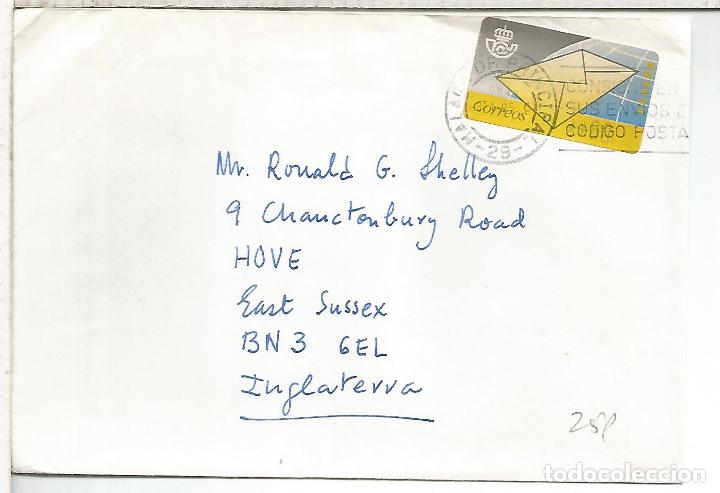 Correos
MALAGA
-29-
CONSIGNE EN
SUS ENVIOS E
CODIGO POSTA
Mr. Ronald G. Shelley
9 Chanctonbury Road
HOVE
East Sussex
BN3 6EL
Inglaterra
todocoleccion